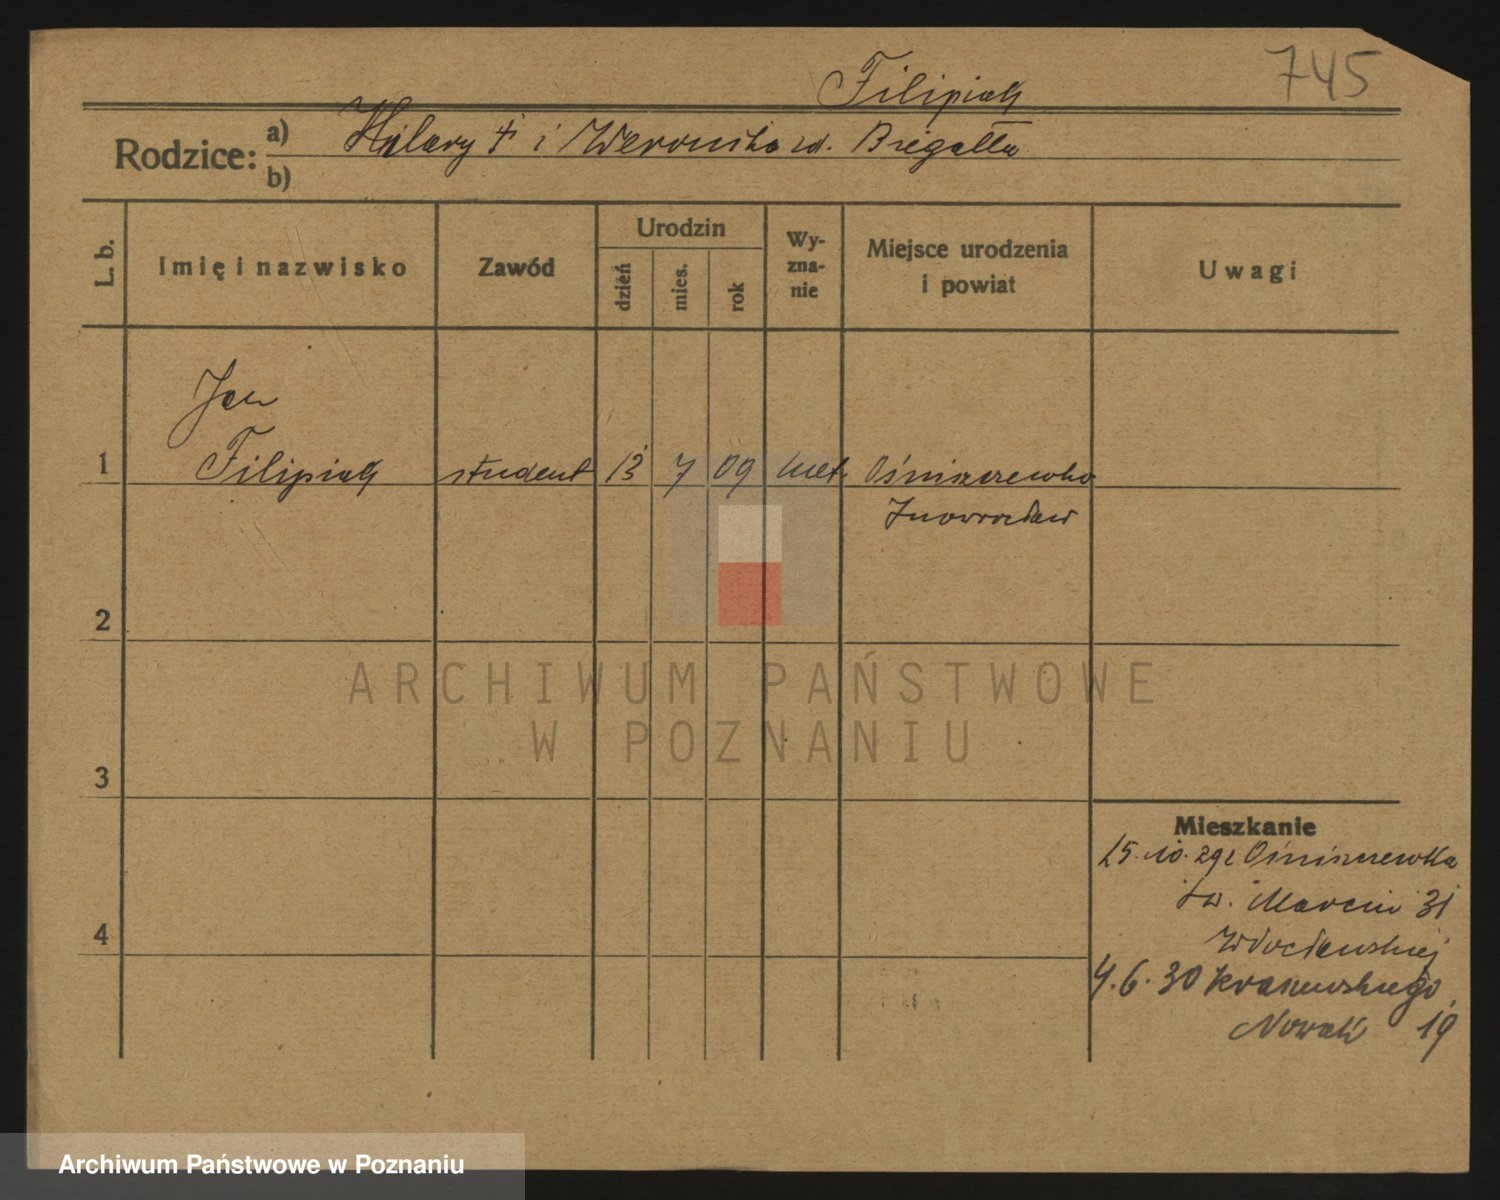 745
Filipiak
Rodzice: a) Hilary † i Weronika zd. Biegałła
b)
L. b.
Imię i nazwisko
Zawód
Urodzin
dzień
mies.
rok
Wy-
zna-
nie
Miejsce urodzenia
i powiat
Uwagi
Jan
1 Filipiak student 13 7 09 kat. Ośniszczewko
Inowrocław
2
3
4
Mieszkanie
25.10.29 z Ośniszczewka
św. Marcin 31
4.6.30 Kraszewskiego
Nowak 19
ARCHIWUM PAŃSTWOWE
W POZNANIU
Archiwum Państwowe w Poznaniu